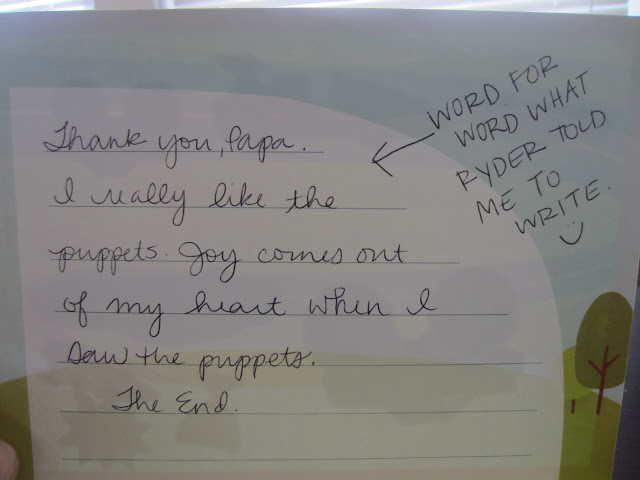 Thank you, Papa.
I really like the
puppets. Joy comes out
of my heart when I
saw the puppets.
The End.
WORD FOR
WORD WHAT
RYDER TOLD
ME TO
WRITE.